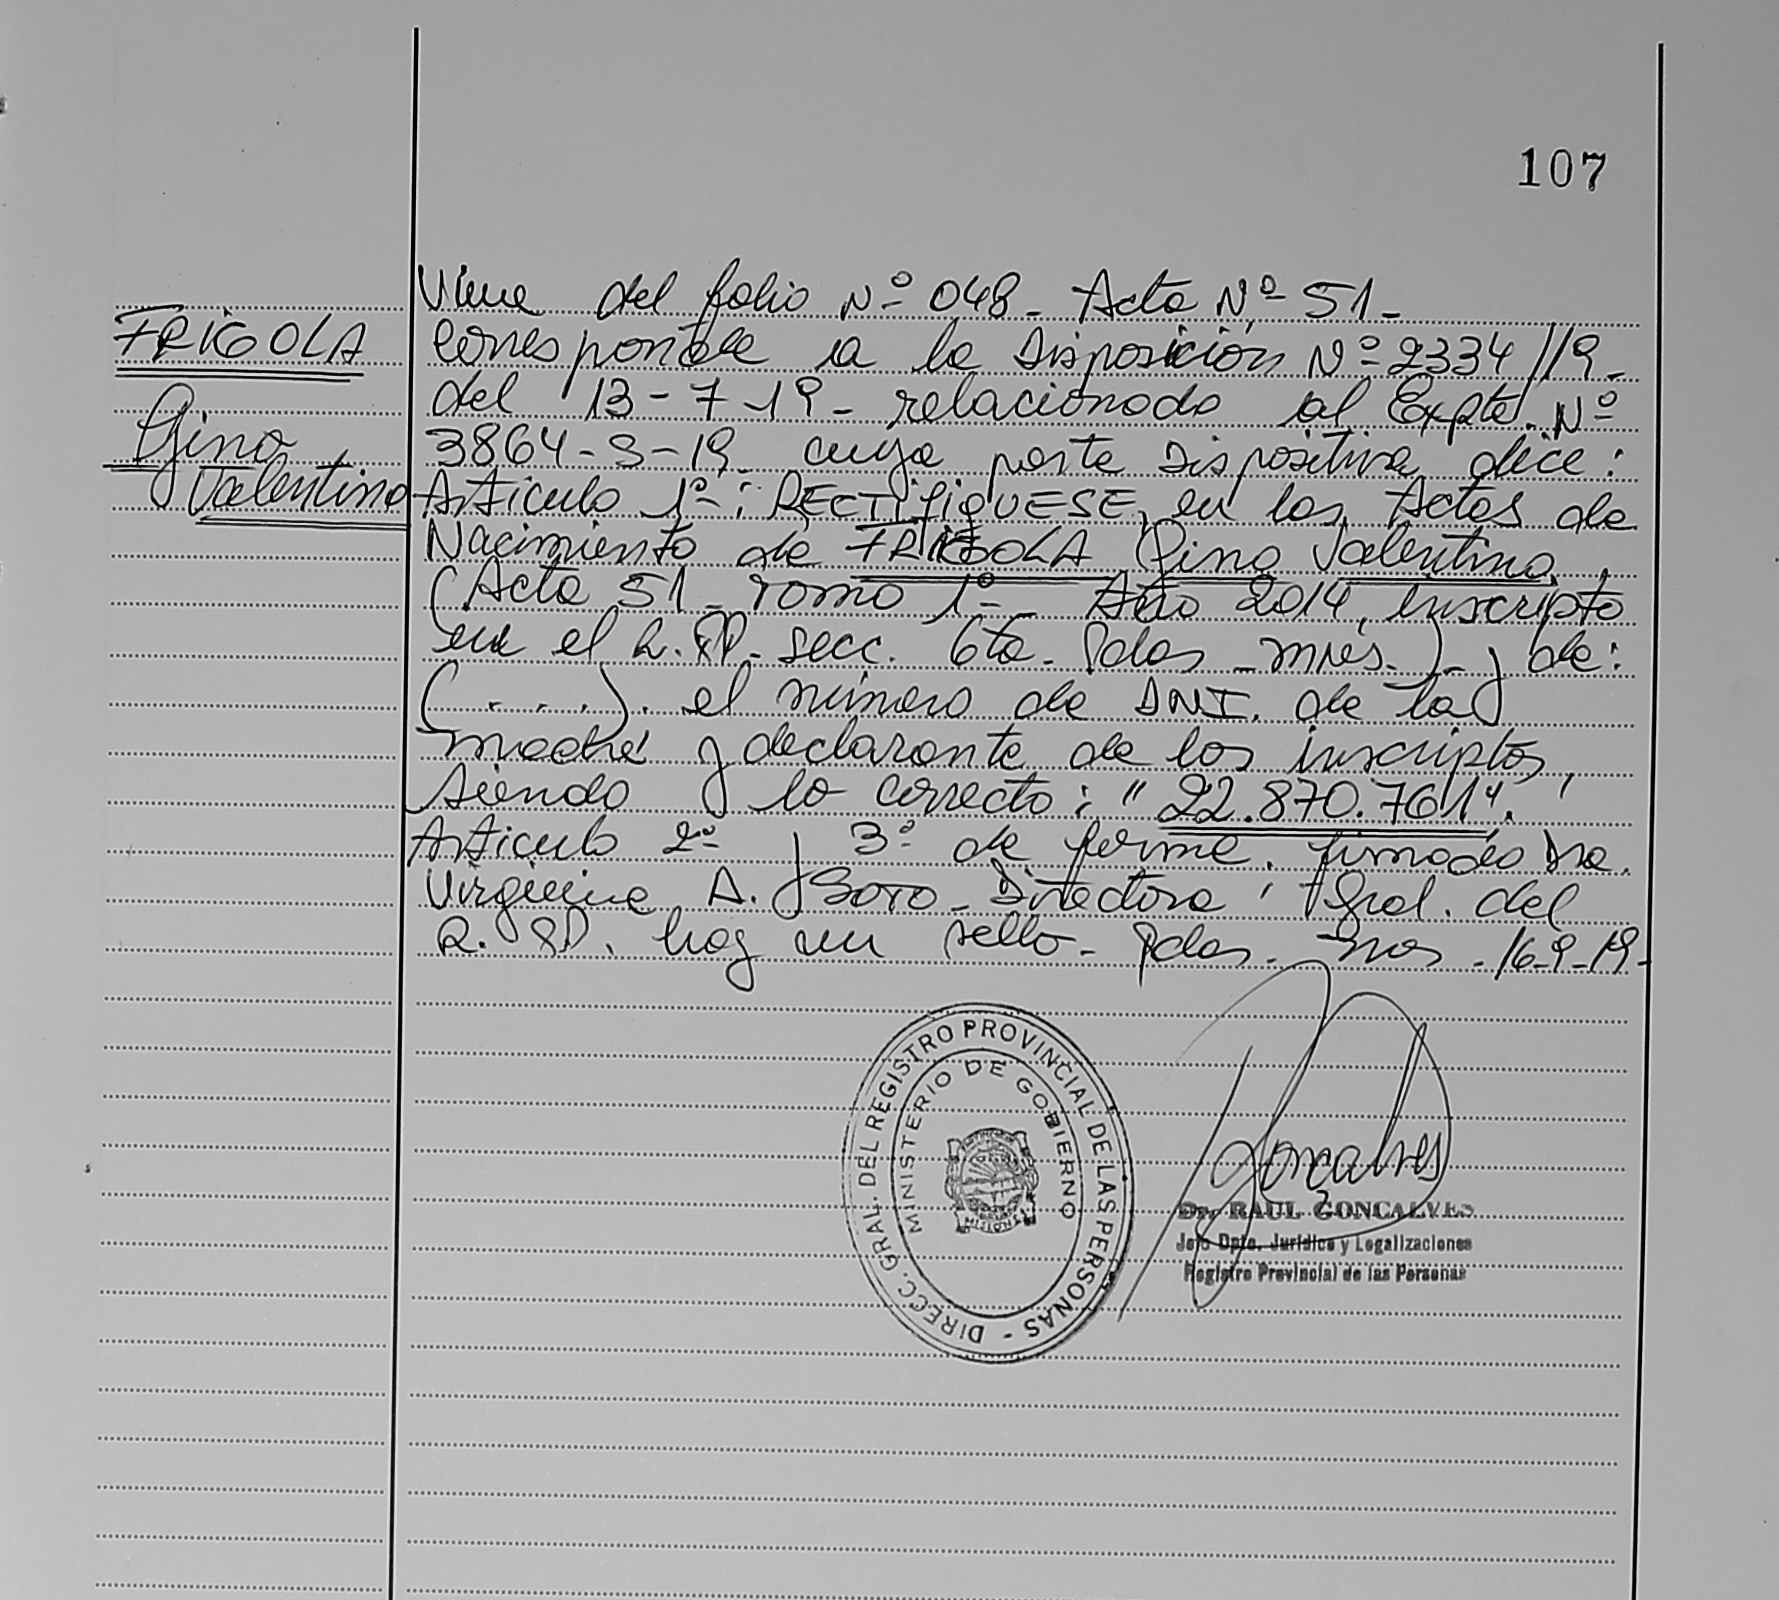 107
FRIGOLA
Gino
Valentino
Viene del folio Nº 048 - Acta Nº 51 -
corresponde a la Disposición Nº 2334//19 -
del 13-7-19 - relacionado al Expte. Nº
3864-S-19 - cuya parte dispositiva dice:
Artículo 1º: RECTIFIQUESE, en las Actas de
Nacimiento de FRIGOLA Gino Valentino,
(Acta 51 - Tomo 1º - Año 2014, inscripto
en el R.PP. secc. 6ta. Pdas - Mnes.) - y de:
(....). el número de DNI. de la
madre y declarante de los inscriptos,
siendo lo correcto: "22.870.761".
Artículo 2º y 3º de forma. firmado Dra.
Virginia A. Soto - Directora Gral. del
R.PP. hay un sello - Pdas. Mnes - 16-9-19 -
DIRECC. GRAL. DEL REGISTRO PROVINCIAL DE LAS PERSONAS -
MINISTERIO DE GOBIERNO
MISIONES
Goncalves
Dr. RAUL GONCALVES
Jefe Dpto. Jurídico y Legalizaciones
Registro Provincial de las Personas